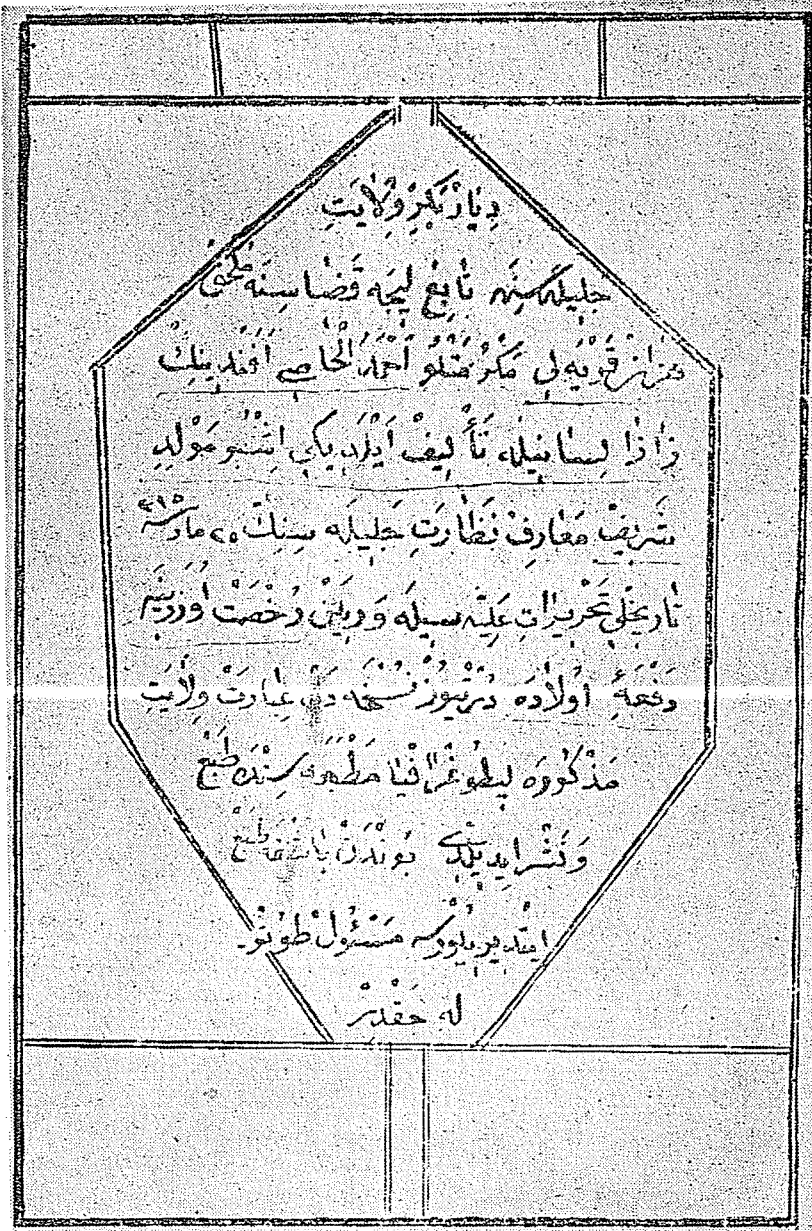 دِيَارْبَكِرْ وِلَايَتِ
جَلِيلَه سِنَه تَابِعْ لِيجَه قَضَاسِنَه مُلْحَقْ
هزان قَرْيَه لِى مَكْرُمَتْلُو اَحْمَدُ الْخَاصِى اَفَنْدِينِكْ
زَازَا لِسَانِيلَه تَأْلِيفْ اَيْلَدِيكِى اِشْبُو مَوْلِدِ
شَرِيفْ مَعَارِفْ نَظَارَتِ جَلِيلَه سِنِكْ ٢٠ مارت سنه ٣١٥
تَارِيخْلِى تَحْرِيرَاتِ عَلِيَّه سِيلَه وَيرِيلَنْ رُخْصَتْ اُوزَرِينَه
دَفْعَۀِ اُولَادَه دُرْتْيُوزْ نُسْخَه دَنْ عِبَارَتْ وِلَايَتِ
مَذْكُورَه لِيطُوغْرَافْيَا مَطْبَعَه سِنْدَه طَبْعْ
وَنَشْر اِيدِيلْدِى بُونْدَنْ بَاشْقَه طَبْعْ
اِيتْدِيرِيلُورْسَه مَسْئُولْ طُوتُو
لَه جَقْدِرْ